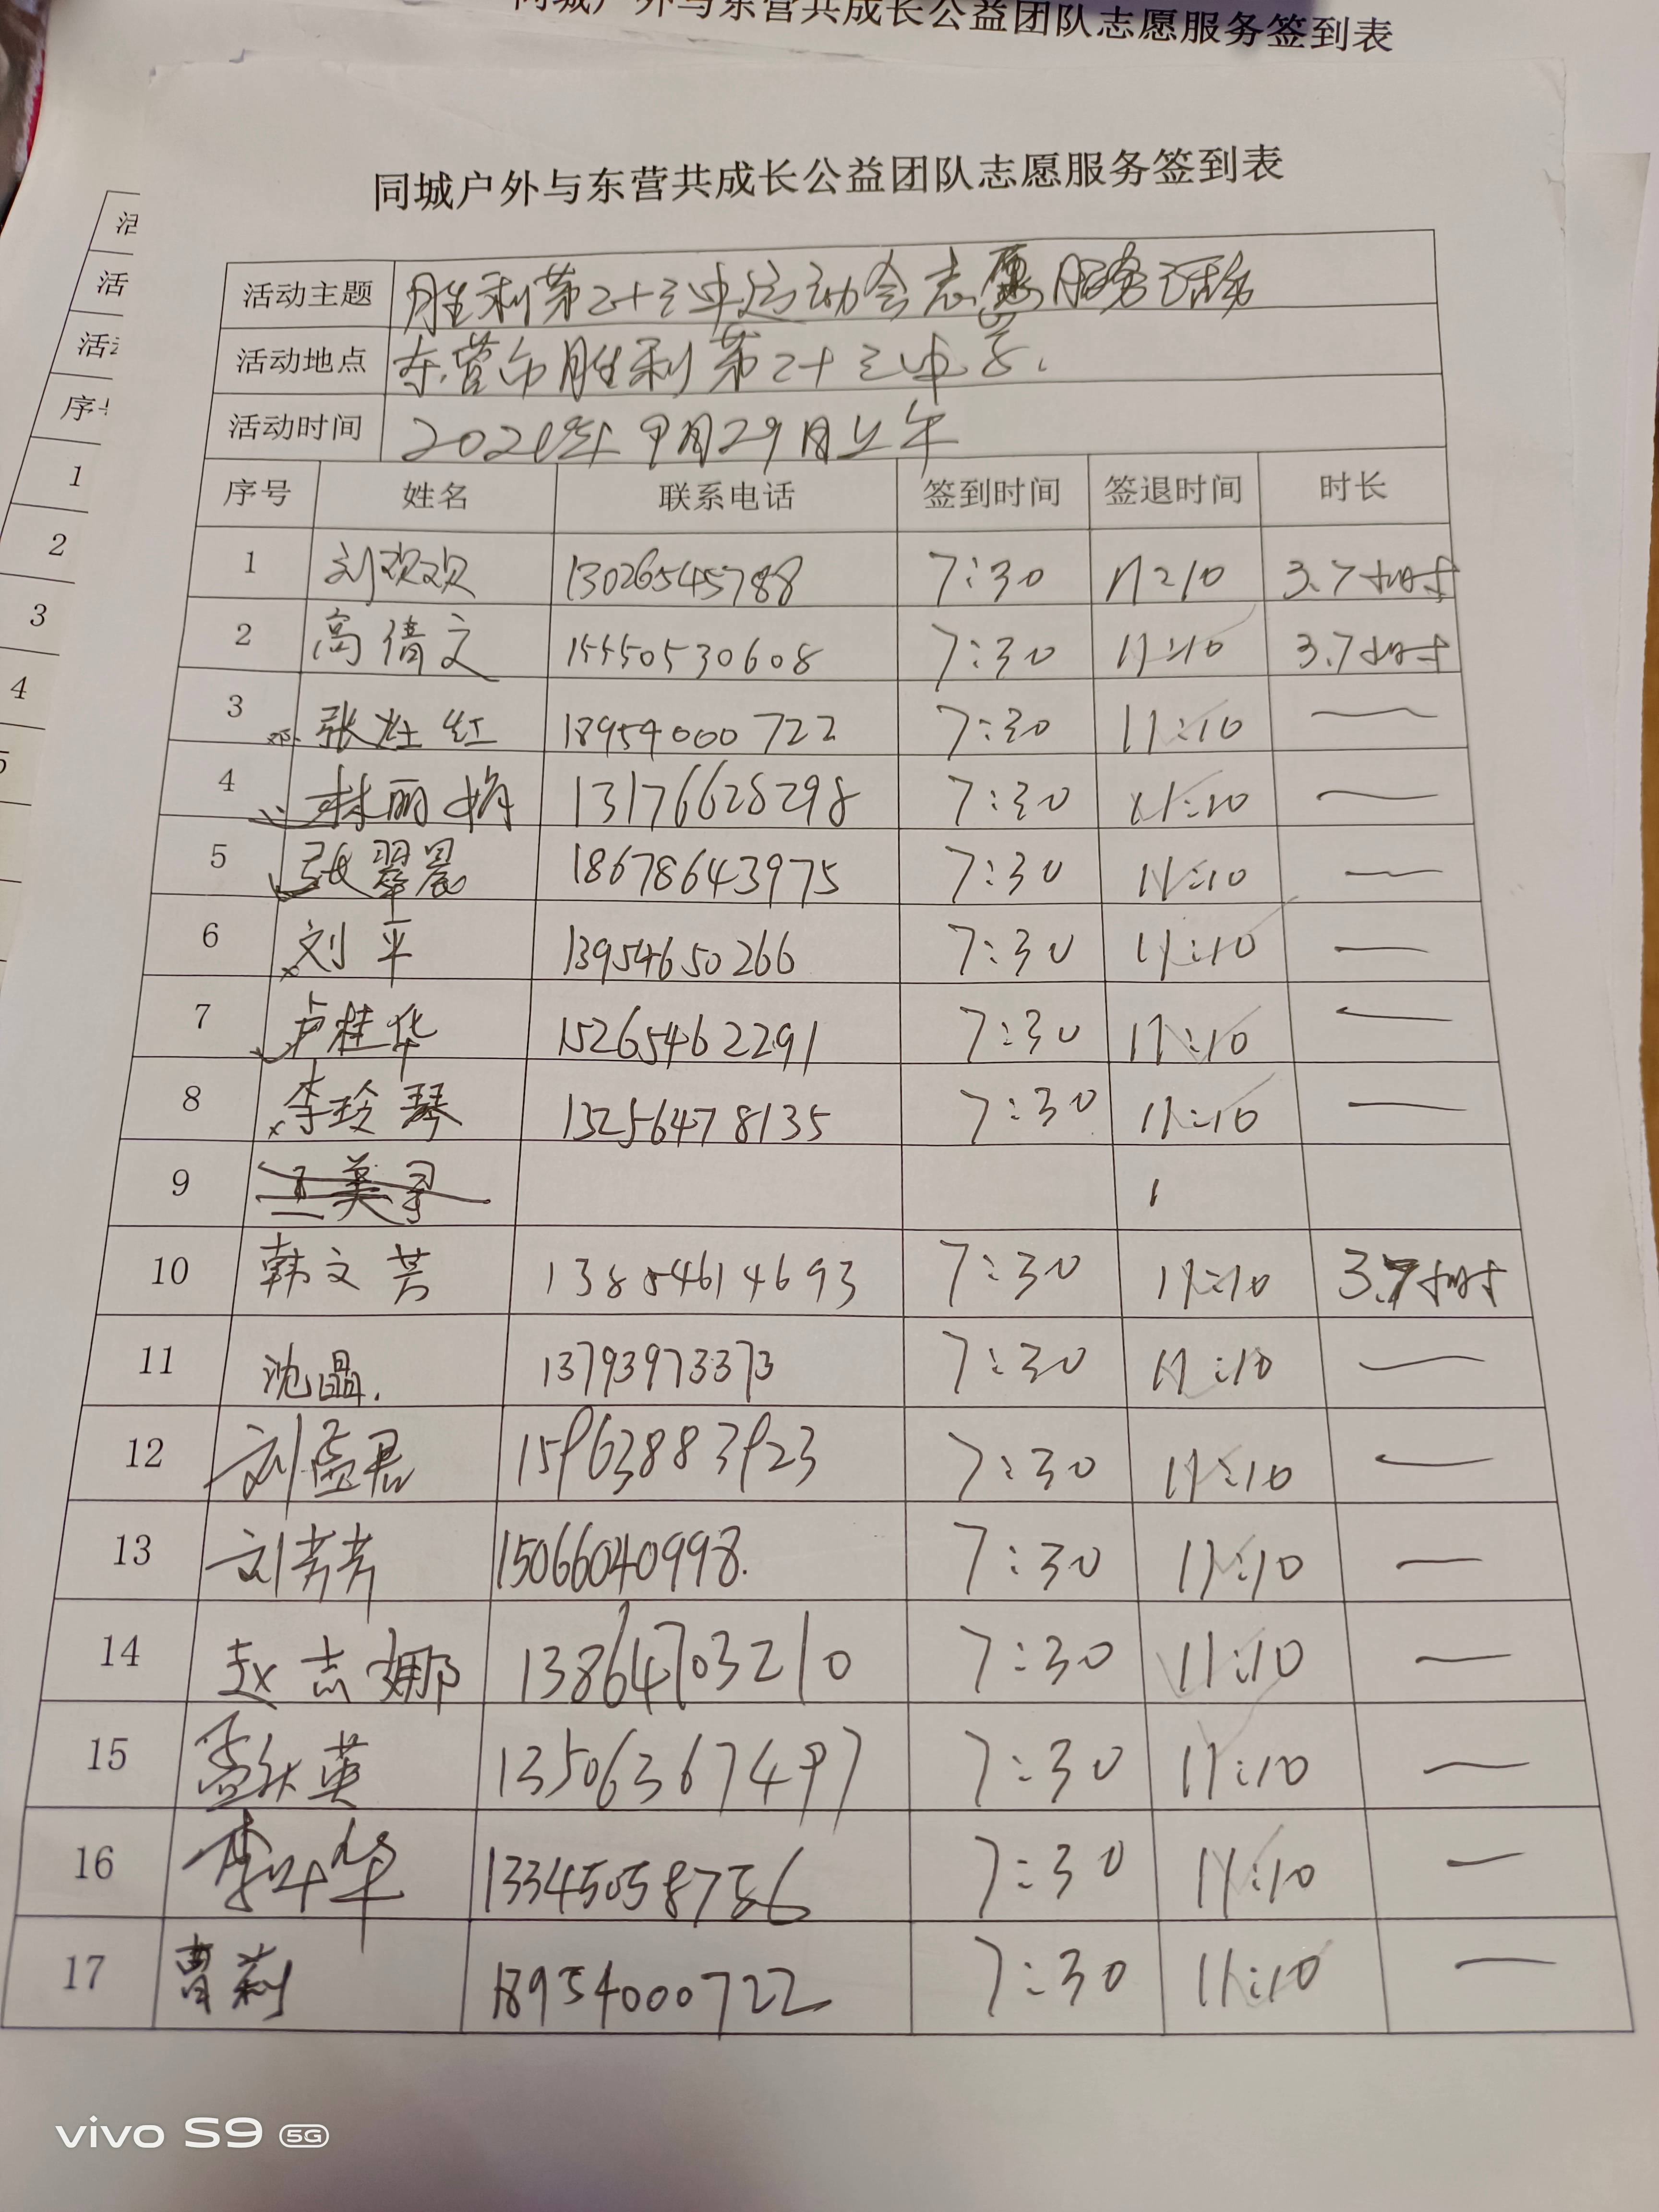 同城户外与东营共成长公益团队志愿服务签到表
同城户外与东营共成长公益团队志愿服务签到表
活
活
活
序号
1
2
3
4
5
活动主题 胜利第二十三中运动会志愿服务活动
活动地点 东营市胜利第二十三中学.
活动时间 2021年9月29日上午
序号 姓名 联系电话 签到时间 签退时间 时长
1 刘欢欢 13026545788 7:30 11:10 3.7小时
2 高倩文 15550530608 7:30 11:10 3.7小时
3 张 红 18954000722 7:30 11:10 —
4 林丽娟 13176628298 7:30 11:10 —
5 张翠晨 18678643975 7:30 11:10 —
6 刘平 13954650266 7:30 11:10 —
7 卢桂华 15265462291 7:30 11:10 —
8 李玲琴 13256478135 7:30 11:10 —
9
10 韩文芳 13854614693 7:30 11:10 3.7小时
11 沈晶. 13793973373 7:30 11:10 —
12 刘孟君 15963883923 7:30 11:10 —
13 刘芳芳 15066040998. 7:30 11:10 —
14 赵志娜 13864703210 7:30 11:10 —
15 孟秋英 13506367497 7:30 11:10 —
16 李叶华 13345058756 7:30 11:10 —
17 曹莉 18954000722 7:30 11:10 —
vivo S9 5G